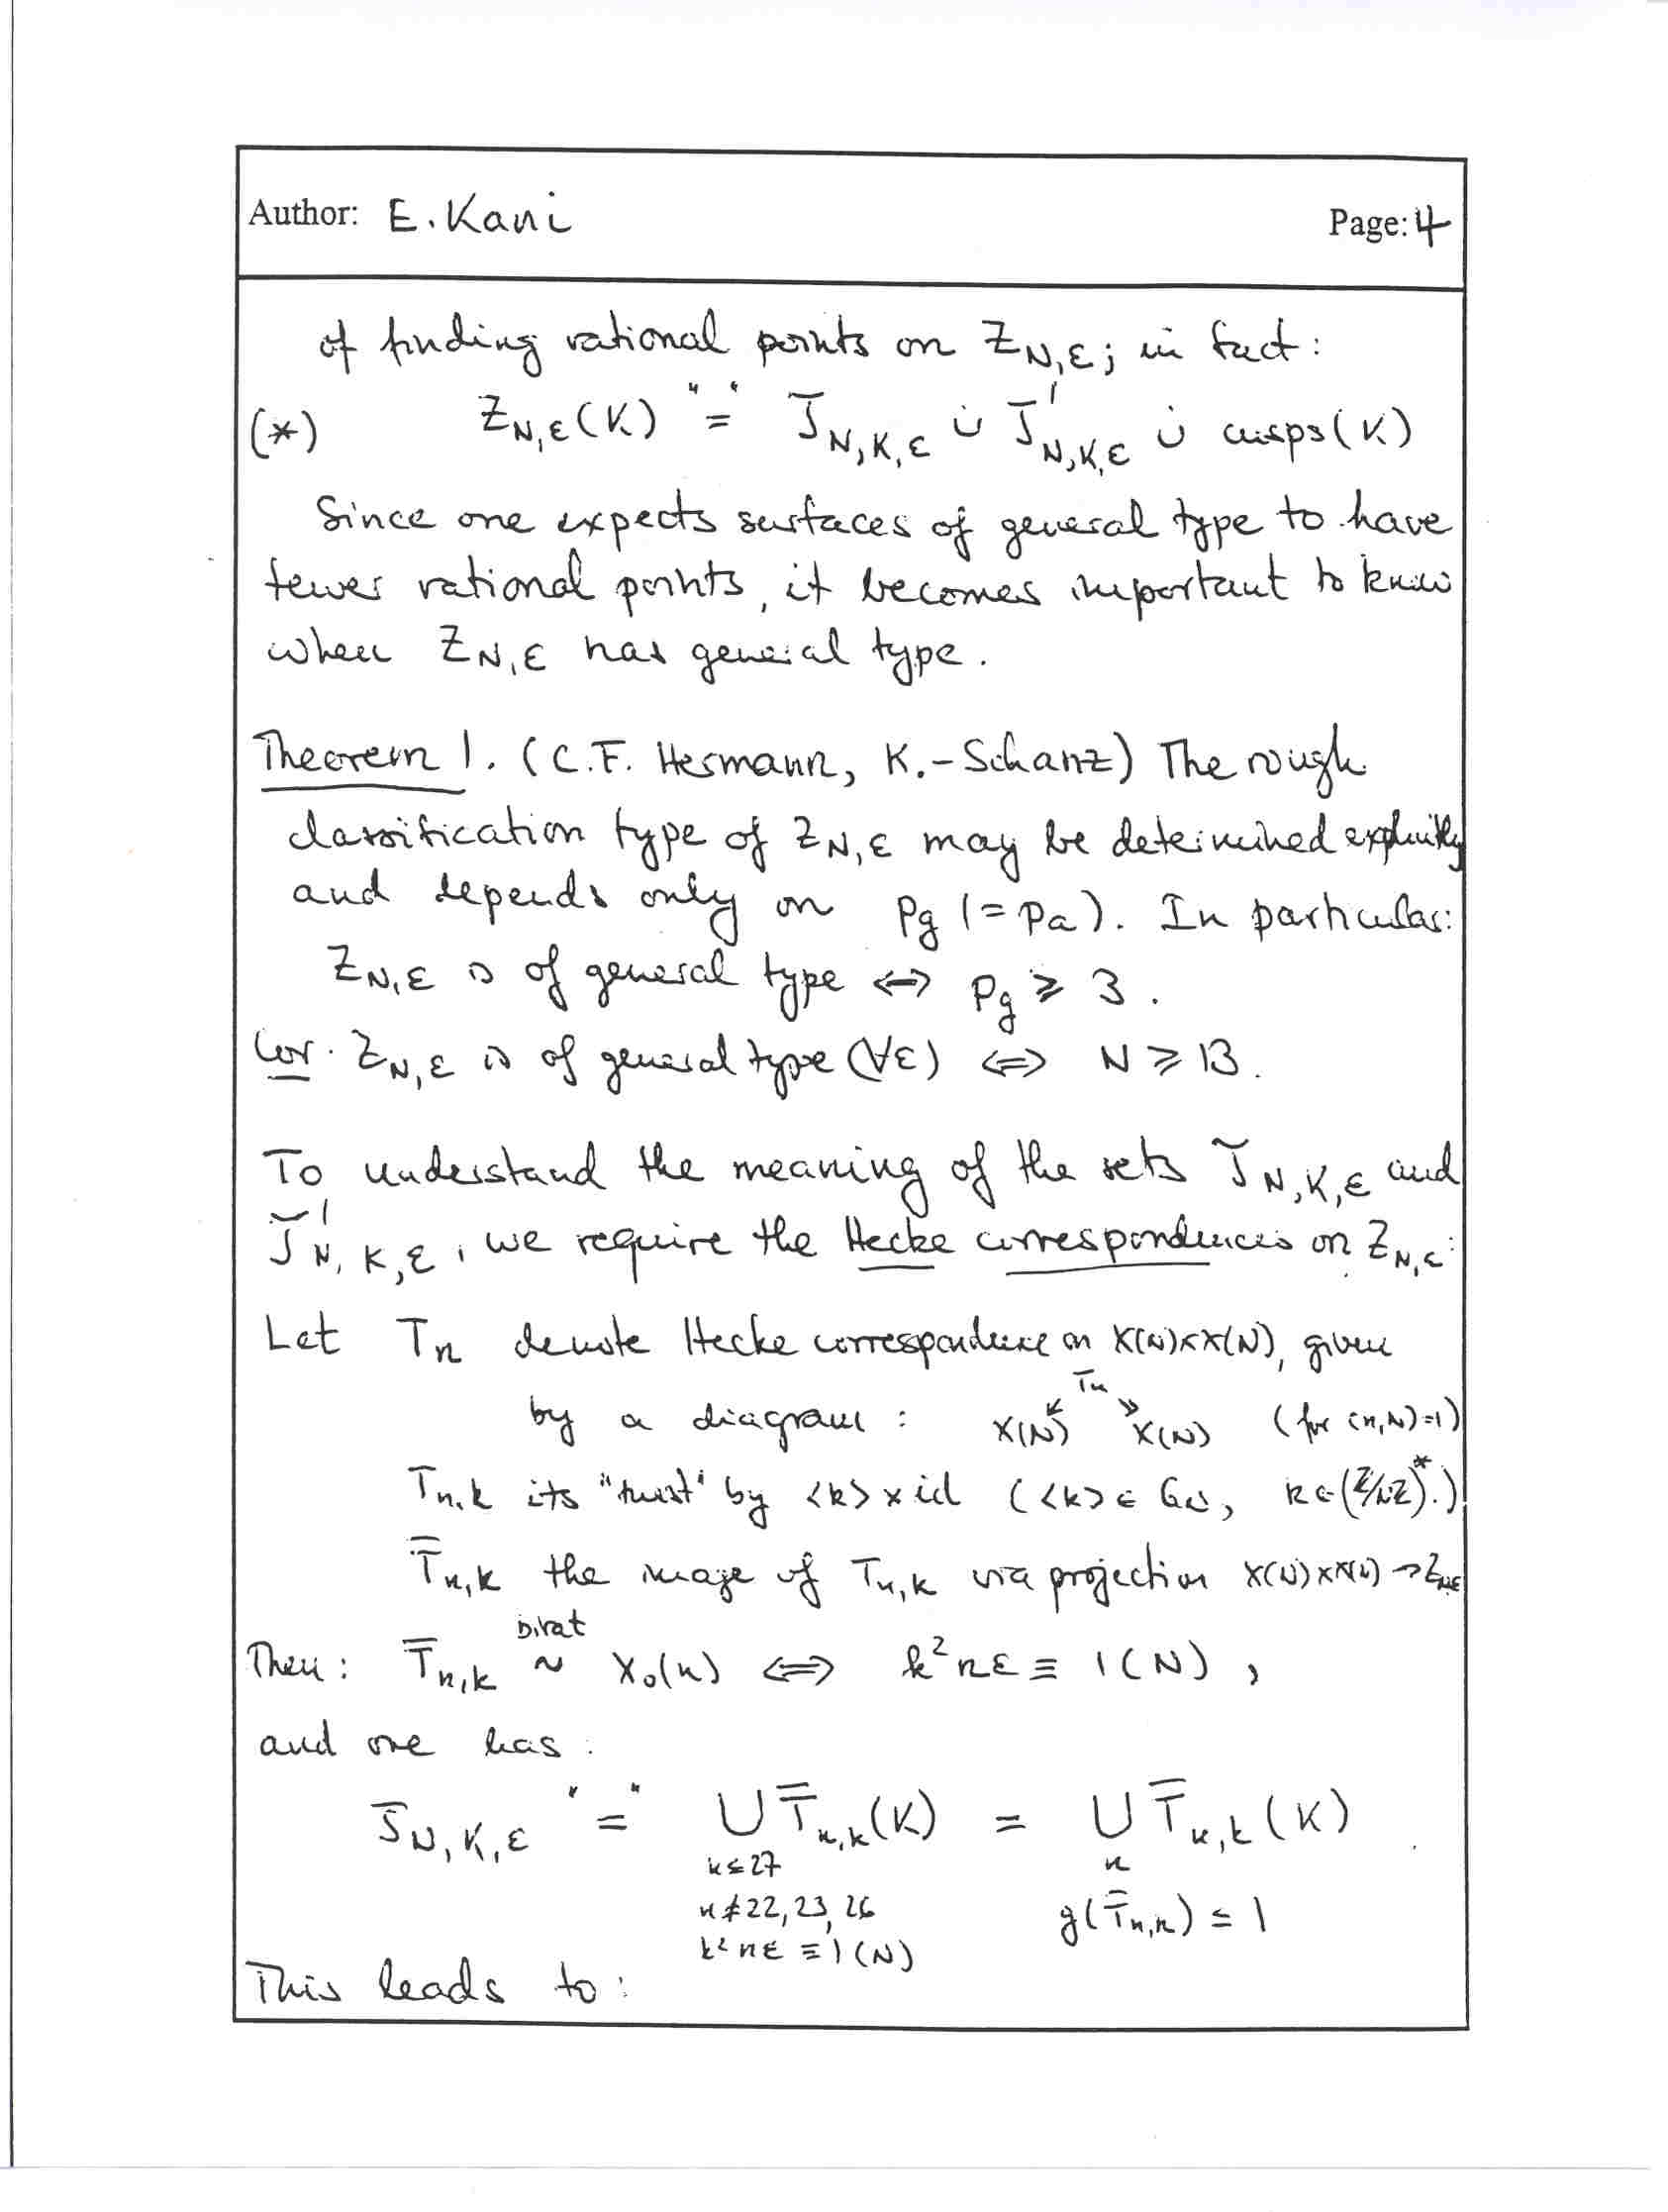 Author: E. Kani Page: 4
of finding rational points on Z_{N,ε}; in fact:
(*) Z_{N,ε}(K) "=" J̃_{N,K,ε} ∪̇ J̃'_{N,K,ε} ∪̇ cusps(K)
Since one expects surfaces of general type to have
fewer rational points, it becomes important to know
when Z_{N,ε} has general type.
Theorem 1. (C.F. Hermann, K.-Schanz) The rough
classification type of Z_{N,ε} may be determined explicitly
and depends only on p_g (= p_a). In particular:
Z_{N,ε} is of general type ⟺ p_g ≥ 3.
Cor. Z_{N,ε} is of general type (∀ε) ⟺ N ≥ 13.
To understand the meaning of the sets J̃_{N,K,ε} and
J̃'_{N,K,ε}, we require the Hecke correspondences on Z_{N,ε}:
Let T_n denote Hecke correspondence on X(N)×X(N), given
by a diagram: X(N) ↙ T_n ↘ X(N) (for (n,N)=1)
T_{n,k} its "twist" by <k>×id (<k> ∈ G_N, k ∈ (ℤ/Nℤ)*.)
T̄_{n,k} the image of T_{n,k} via projection X(N)×X(N) → Z_{N,ε}
Then: T̄_{n,k} birat ~ X_0(n) ⟺ k²nε ≡ 1 (N),
and one has:
J̃_{N,K,ε} "=" ∪ T̄_{n,k}(K) = ∪ T̄_{n,k}(K)
n ≤ 27 n
n ≠ 22, 23, 26 g(T̄_{n,k}) ≤ 1
k²nε ≡ 1 (N)
This leads to: